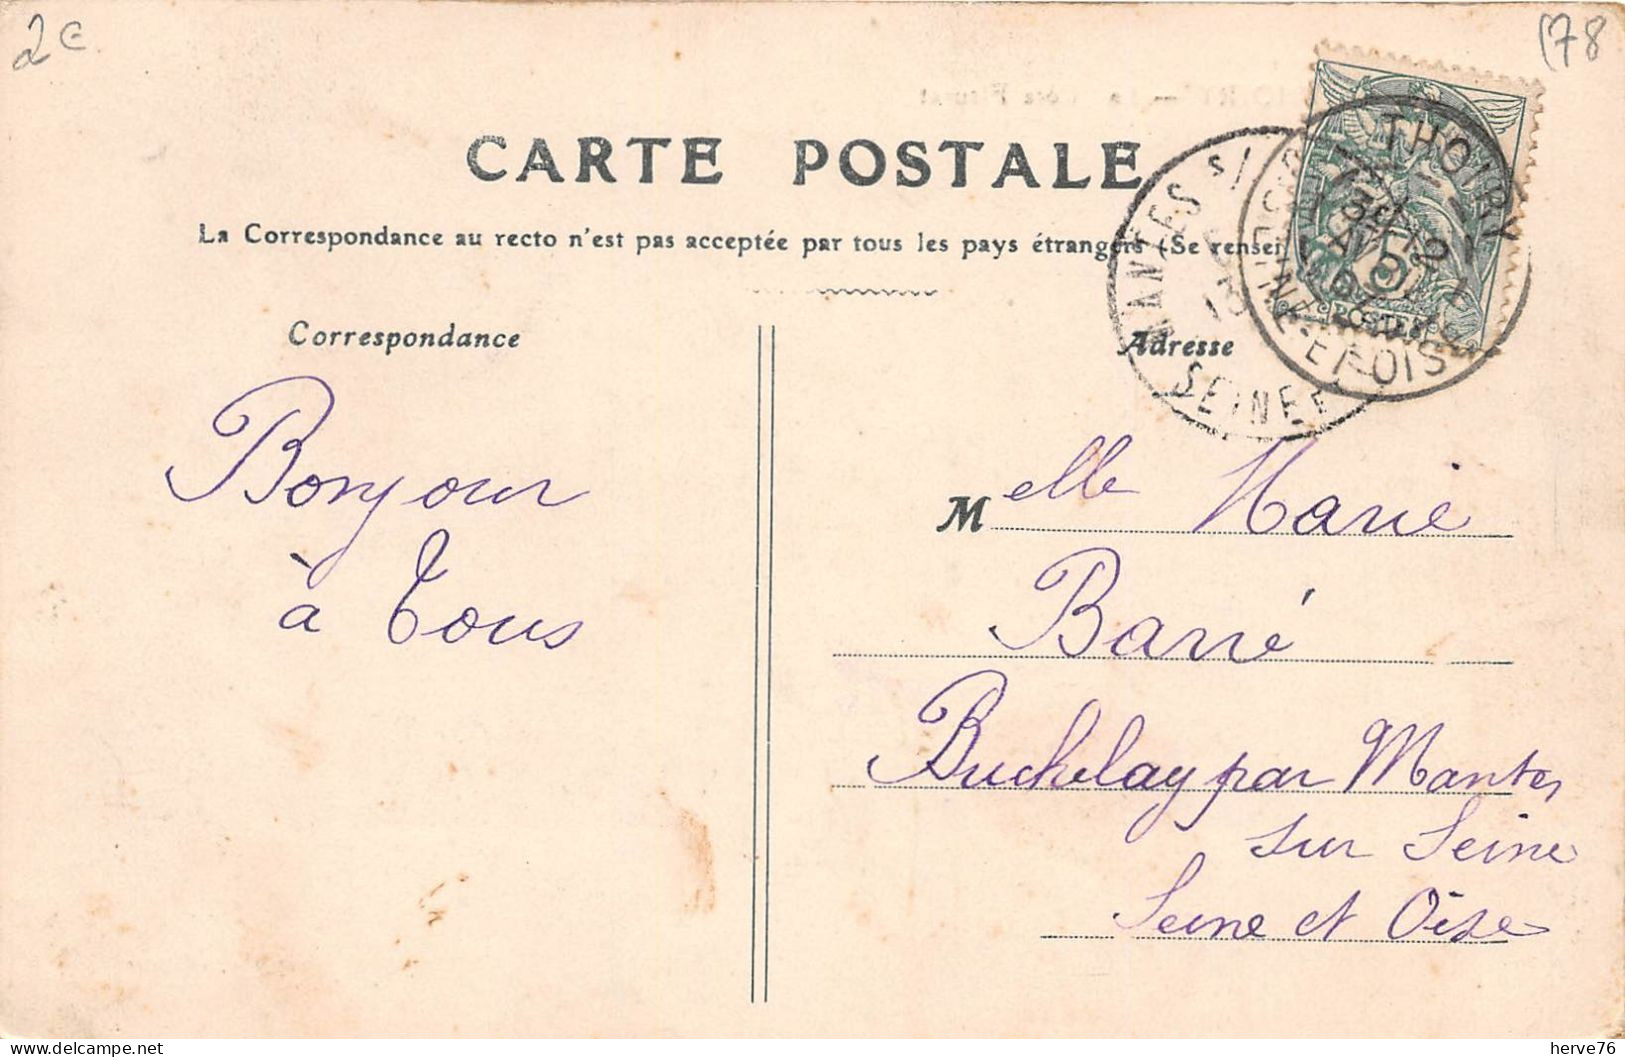 2€
(78
CARTE POSTALE
La Correspondance au recto n'est pas acceptée par tous les pays étrangers (Se rensei
Correspondance
Adresse
THOIRY
SEINE-ET-OISE
MANTES S/
SEINE
POSTES
Bonjour
à Tous
Melle Marie
Barré
Buchelay par Mantes
sur Seine
Seine et Oise
herve76